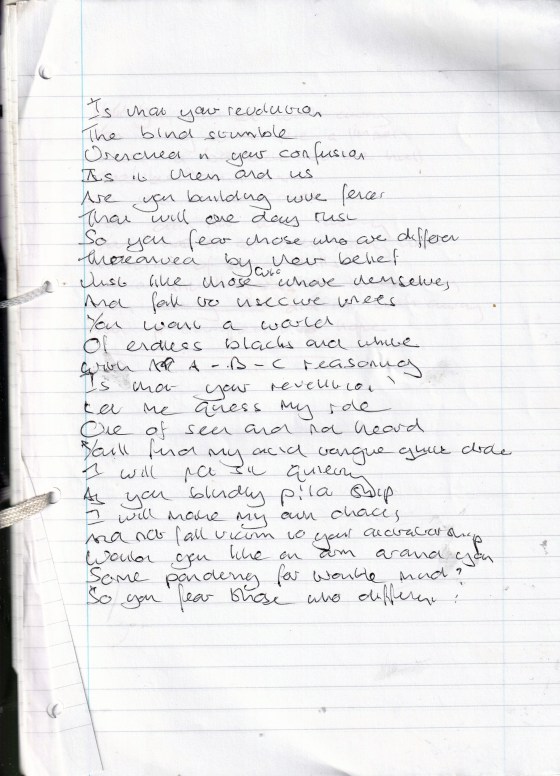 Is that your revolution
The blind stumble
Drenched in your confusion
Is it them and us
Are you building wire fences
That will one day rust
So you fear those who are different
Threatened by their belief
Just like those who
And fall to insecure knees
You want a world
Of endless blacks and white
With A-B-C reasoning
Is that your revolution?
Let me guess my role
One of seen and not heard
You'll find my acid tongue quite
I will not sit quietly
As you blindly pilot ship
I will make my own choices
And not fall victim to your dictatorship
Would you like an arm around you
Some pondering for your mind?
So you fear those who different?